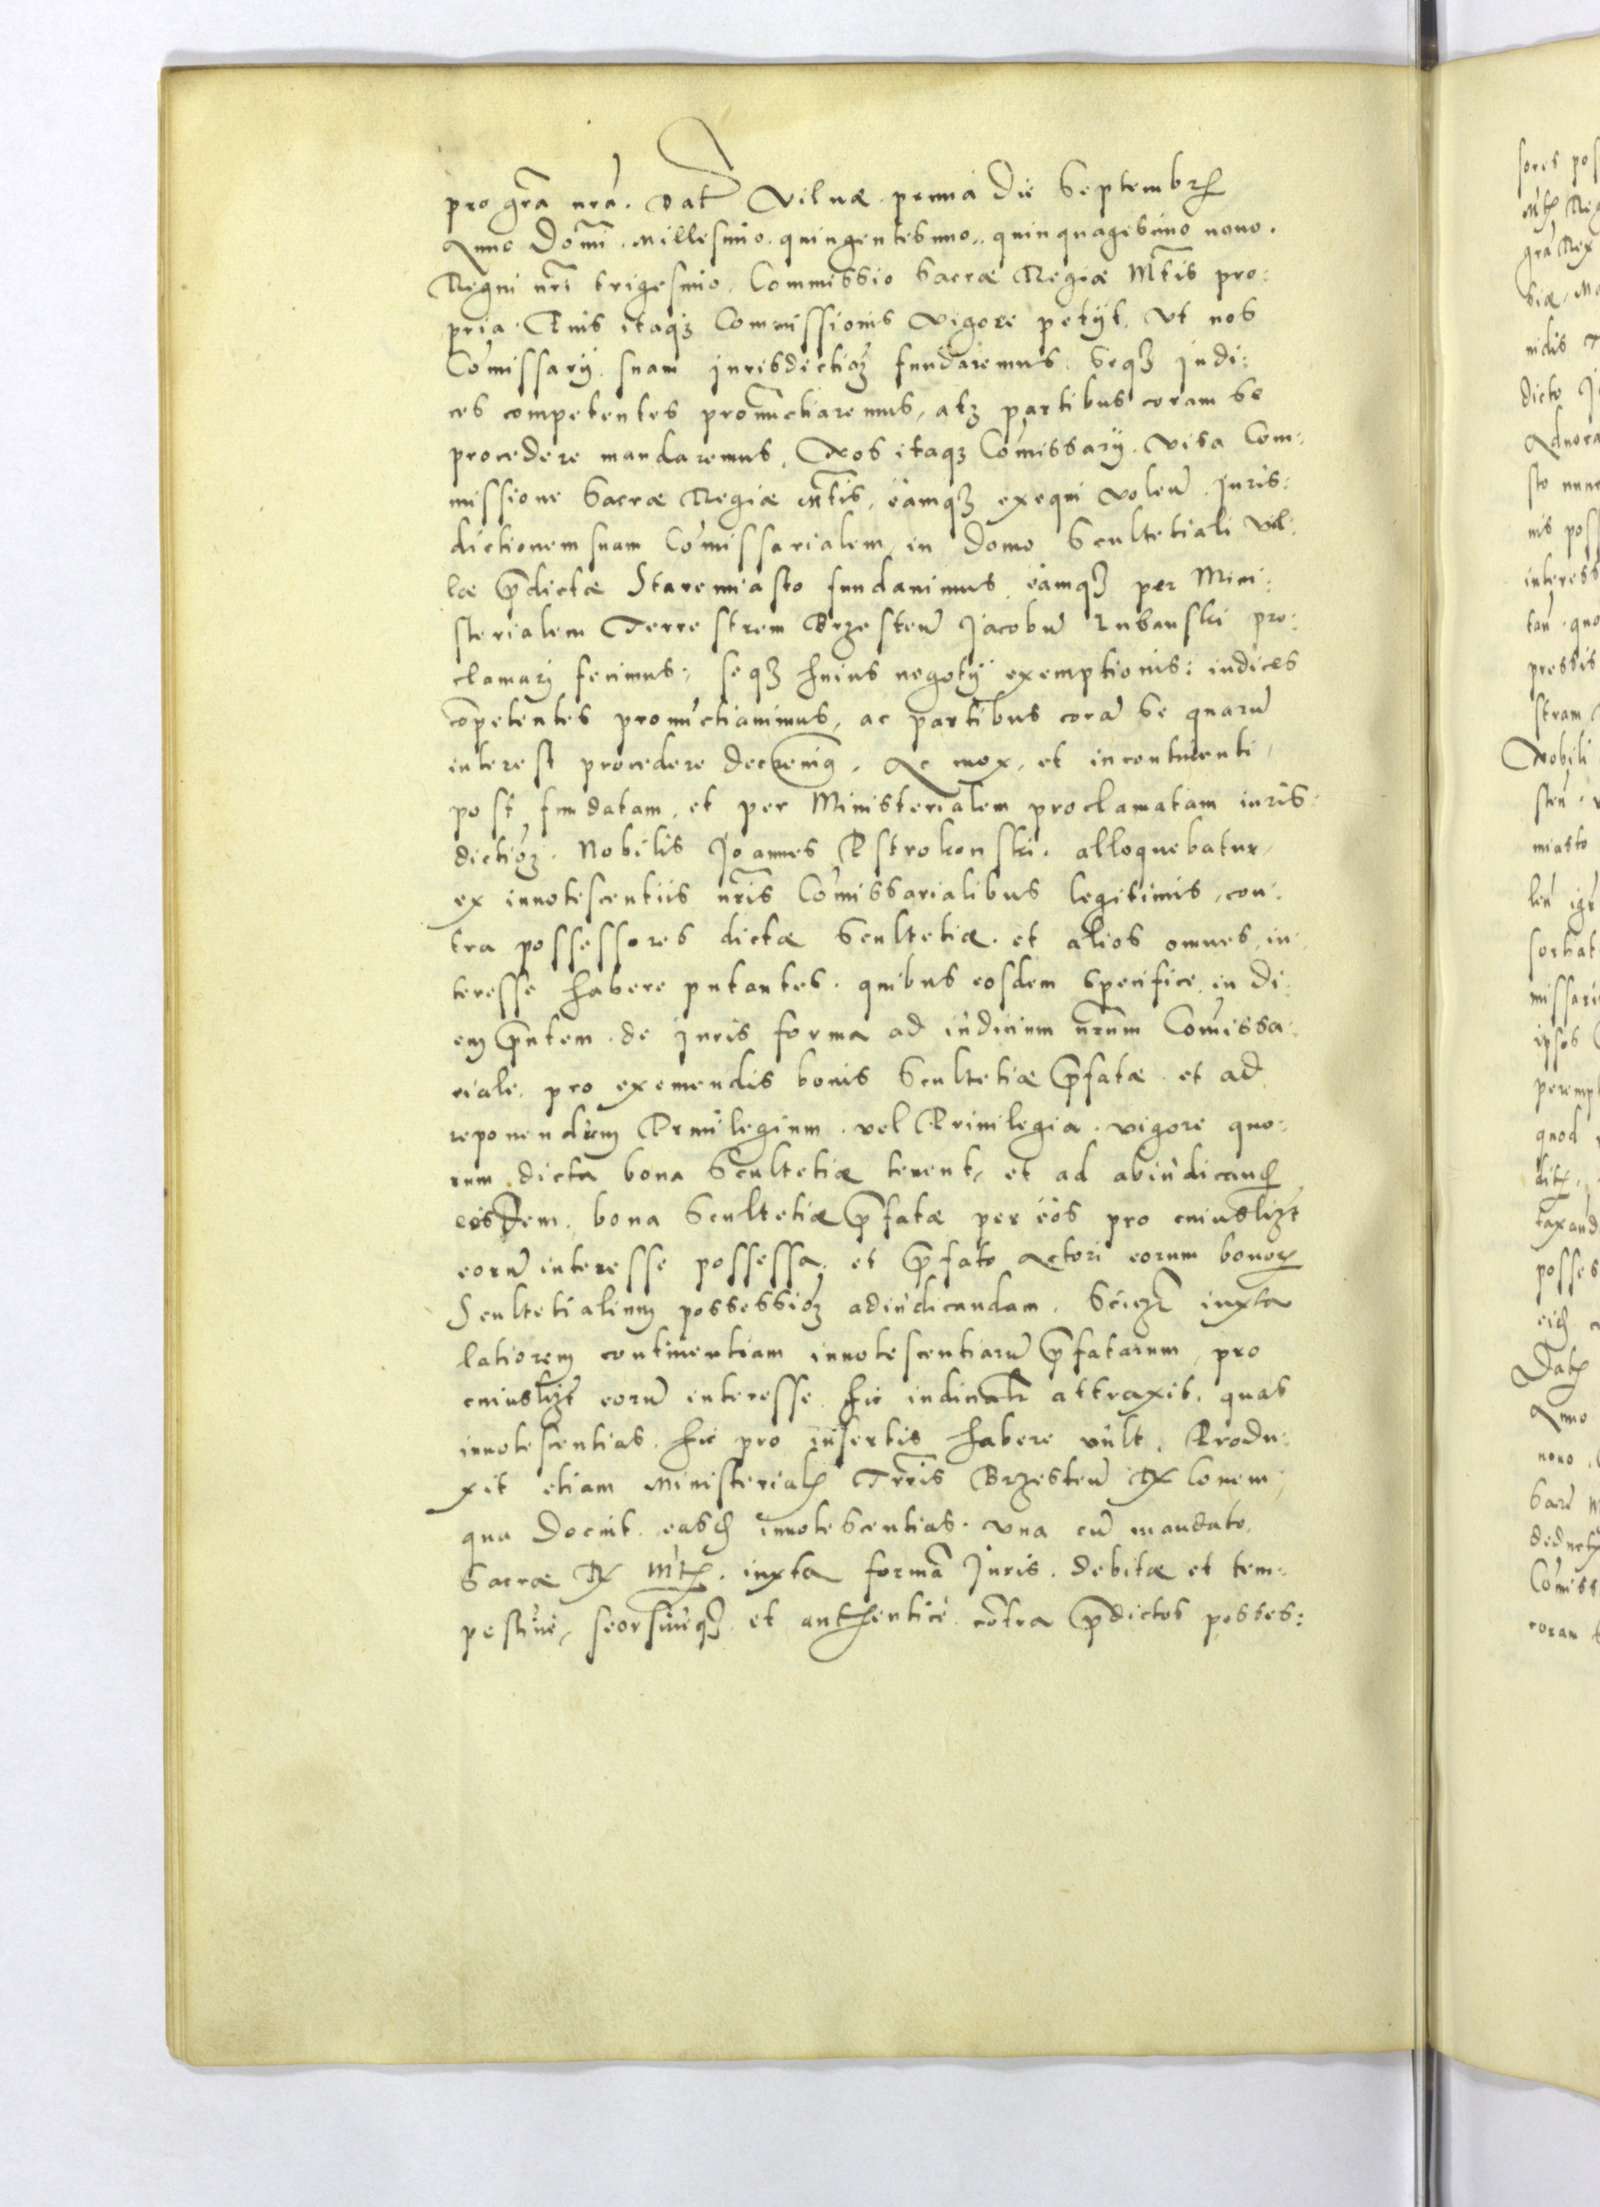 pro gra͞ nra͞. Dat͞ Vilnæ. prima die Septembrꝭ
Anno Dom͞i. Millesimo. quingentesimo. quinquagesimo nono.
Regni nri͞ trigesimo. Commissio Sacræ Regiæ Mt͞is pro:
pria. Cuius itaqꝫ Commissionis vigore petÿt. Vt nos
Co͞missarÿ. suam jurisdictio͞ꝫ fundaremus. seqꝫ judi:
ces competentes pronu͞nctiaremus, atqꝫ partibus coram se
procedere mandaremus. Nos itaqꝫ Co͞missarÿ. Visa Com:
missione Sacræ Regiæ Mt͞is, eamqꝫ exequi volen͞. Juris:
dictionem suam Co͞missarialem in domo Scultetiali Vil:
læ p͞dictæ Staremiasto fundauimus eamqꝫ per Mini:
sterialem Terrestrem Brzesten͞ Jacobu͞ Lubanski pro:
clamarj fecimus, seqꝫ huius negotÿ exemptionis: iudices
co͞petentes pronu͞ctiauimus, ac partibus cora͞ se quaru͞
interest procedere decreuimꝰ. Ac mox, et incontinenti,
post fundatam, et per Ministerialem proclamatam iuris:
dictio͞ꝫ. Nobilis Joannes Ostrokonski. alloquebatur,
ex innotescentiis nri͞s Co͞missarialibus legitimis, con:
tra possessores dictæ Scultetiæ. et alios omnes, in:
teresse habere putantes. quibus eosdem specifice, in di:
em p͞ntem. de Juris forma ad iudicium nr͞um Co͞missa:
riale, pro exemendis bonis Scultetiæ p͞fatæ. et ad
reponendum Priuilegium. vel Priuilegia. vigore quo:
rum dicta bona Scultetiæ tenent, et ad abiudicandꝭ
eisdem. bona Scultetiæ p͞fatæ per eos pro cuiuslibꝫt
eoru͞ interesse possessa. et p͞fato Actori eorum bonorꝭ
Scultetialium possessio͞ꝫ adiudicandam. Scilicꝫt iuxta
latiorem continentiam innotescentiaru͞ p͞fatarum, pro
cuiuslibꝫt eoru͞ interesse. hic iudicialr͞ attraxit. quas
innotescentias. hic pro insertis habere vult. Produ:
xit etiam Ministerialꝭ Trr͞is Brzesten͞ Rꝭlonem,
qua docuit. easdꝭ innotescentias. vna cu͞ mandato,
Sacræ Rꝭ Mt͞ꝭ. iuxta forma͞ Juris. debitæ et tem:
pestiue, seorsiueqꝫ et authentice co͞tra p͞dictos posses: